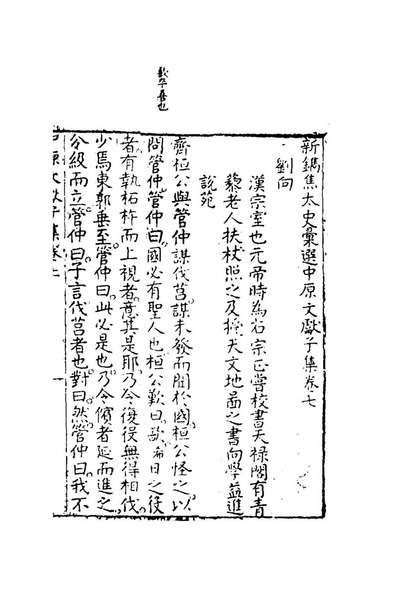 新鐫焦太史彙選中原文獻子集卷七
劉向
漢宗室也元帝時為右宗正嘗校書天禄閣有青
藜老人扶杖照之及授天文地啚之書向學益進
說苑
齊桓公與管仲謀伐莒謀未發而聞於國桓公怪之以
問管仲管仲曰國必有聖人也桓公歎曰歖日之役
者有執柘杵而上視者意其是耶乃令復役無得相伐
少焉東郭垂至管仲曰此必是也乃令儐者延而進之
分級而立管仲曰子言伐莒者也對曰然管仲曰我不
中原文獻子集卷七 一